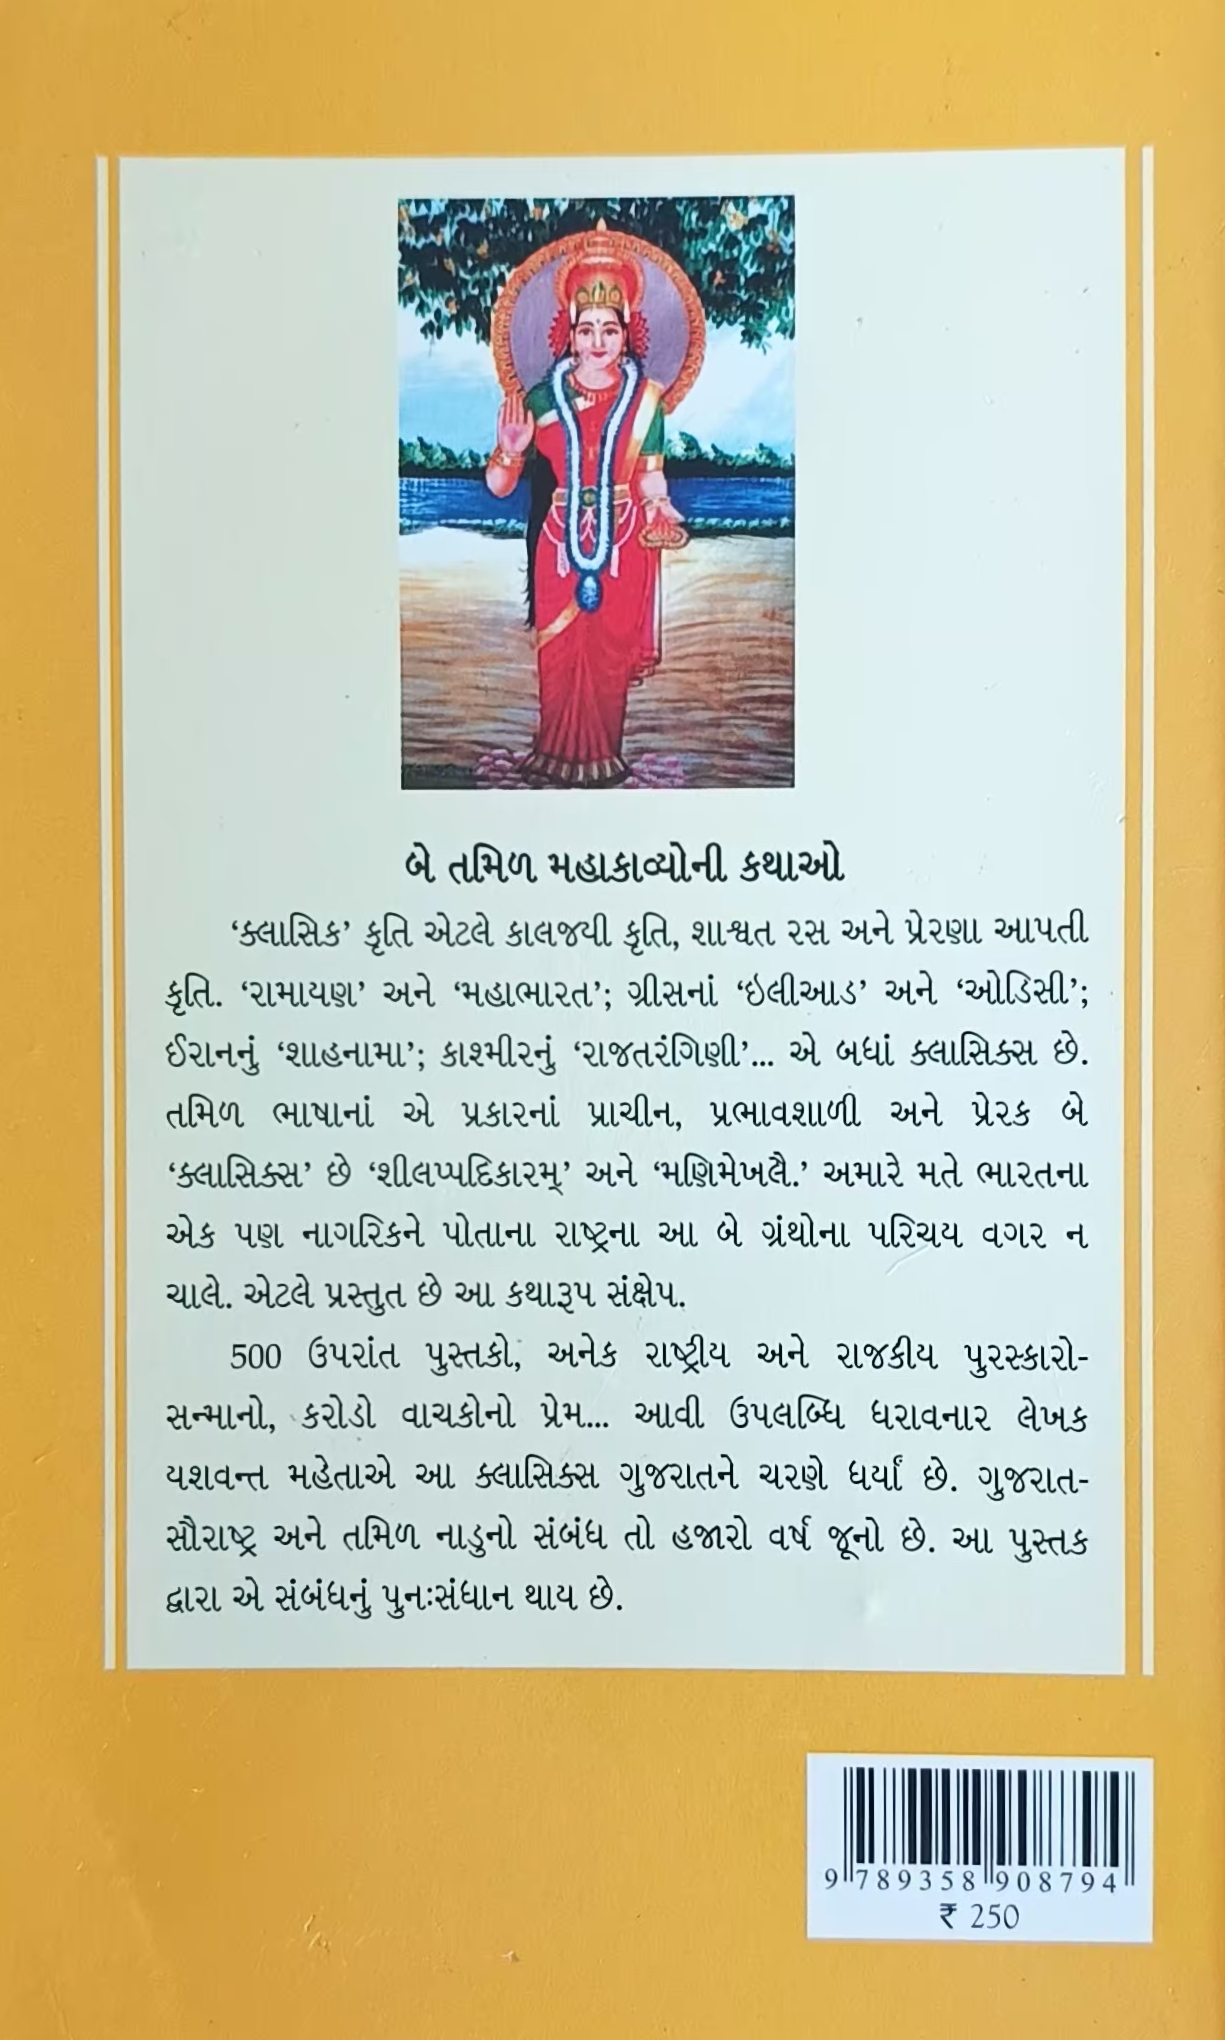 બે તમિળ મહાકાવ્યોની કથાઓ
‘ક્લાસિક’ કૃતિ એટલે કાલજયી કૃતિ, શાશ્વત રસ અને પ્રેરણા આપતી
કૃતિ. ‘રામાયણ’ અને ‘મહાભારત’; ગ્રીસનાં ‘ઇલીઆડ’ અને ‘ઓડિસી’;
ઈરાનનું ‘શાહનામા’; કાશ્મીરનું ‘રાજતરંગિણી’... એ બધાં ક્લાસિક્સ છે.
તમિળ ભાષાનાં એ પ્રકારનાં પ્રાચીન, પ્રભાવશાળી અને પ્રેરક બે
‘ક્લાસિક્સ’ છે ‘શીલપ્પદિકારમ્’ અને ‘મણિમેખલૈ.’ અમારે મતે ભારતના
એક પણ નાગરિકને પોતાના રાષ્ટ્રના આ બે ગ્રંથોના પરિચય વગર ન
ચાલે. એટલે પ્રસ્તુત છે આ કથારૂપ સંક્ષેપ.
500 ઉપરાંત પુસ્તકો, અનેક રાષ્ટ્રીય અને રાજકીય પુરસ્કારો-
સન્માનો, કરોડો વાચકોનો પ્રેમ... આવી ઉપલબ્ધિ ધરાવનાર લેખક
યશવન્ત મહેતાએ આ ક્લાસિક્સ ગુજરાતને ચરણે ધર્યાં છે. ગુજરાત-
સૌરાષ્ટ્ર અને તમિળ નાડુનો સંબંધ તો હજારો વર્ષ જૂનો છે. આ પુસ્તક
દ્વારા એ સંબંધનું પુનઃસંધાન થાય છે.
9 789358 908794
₹ 250